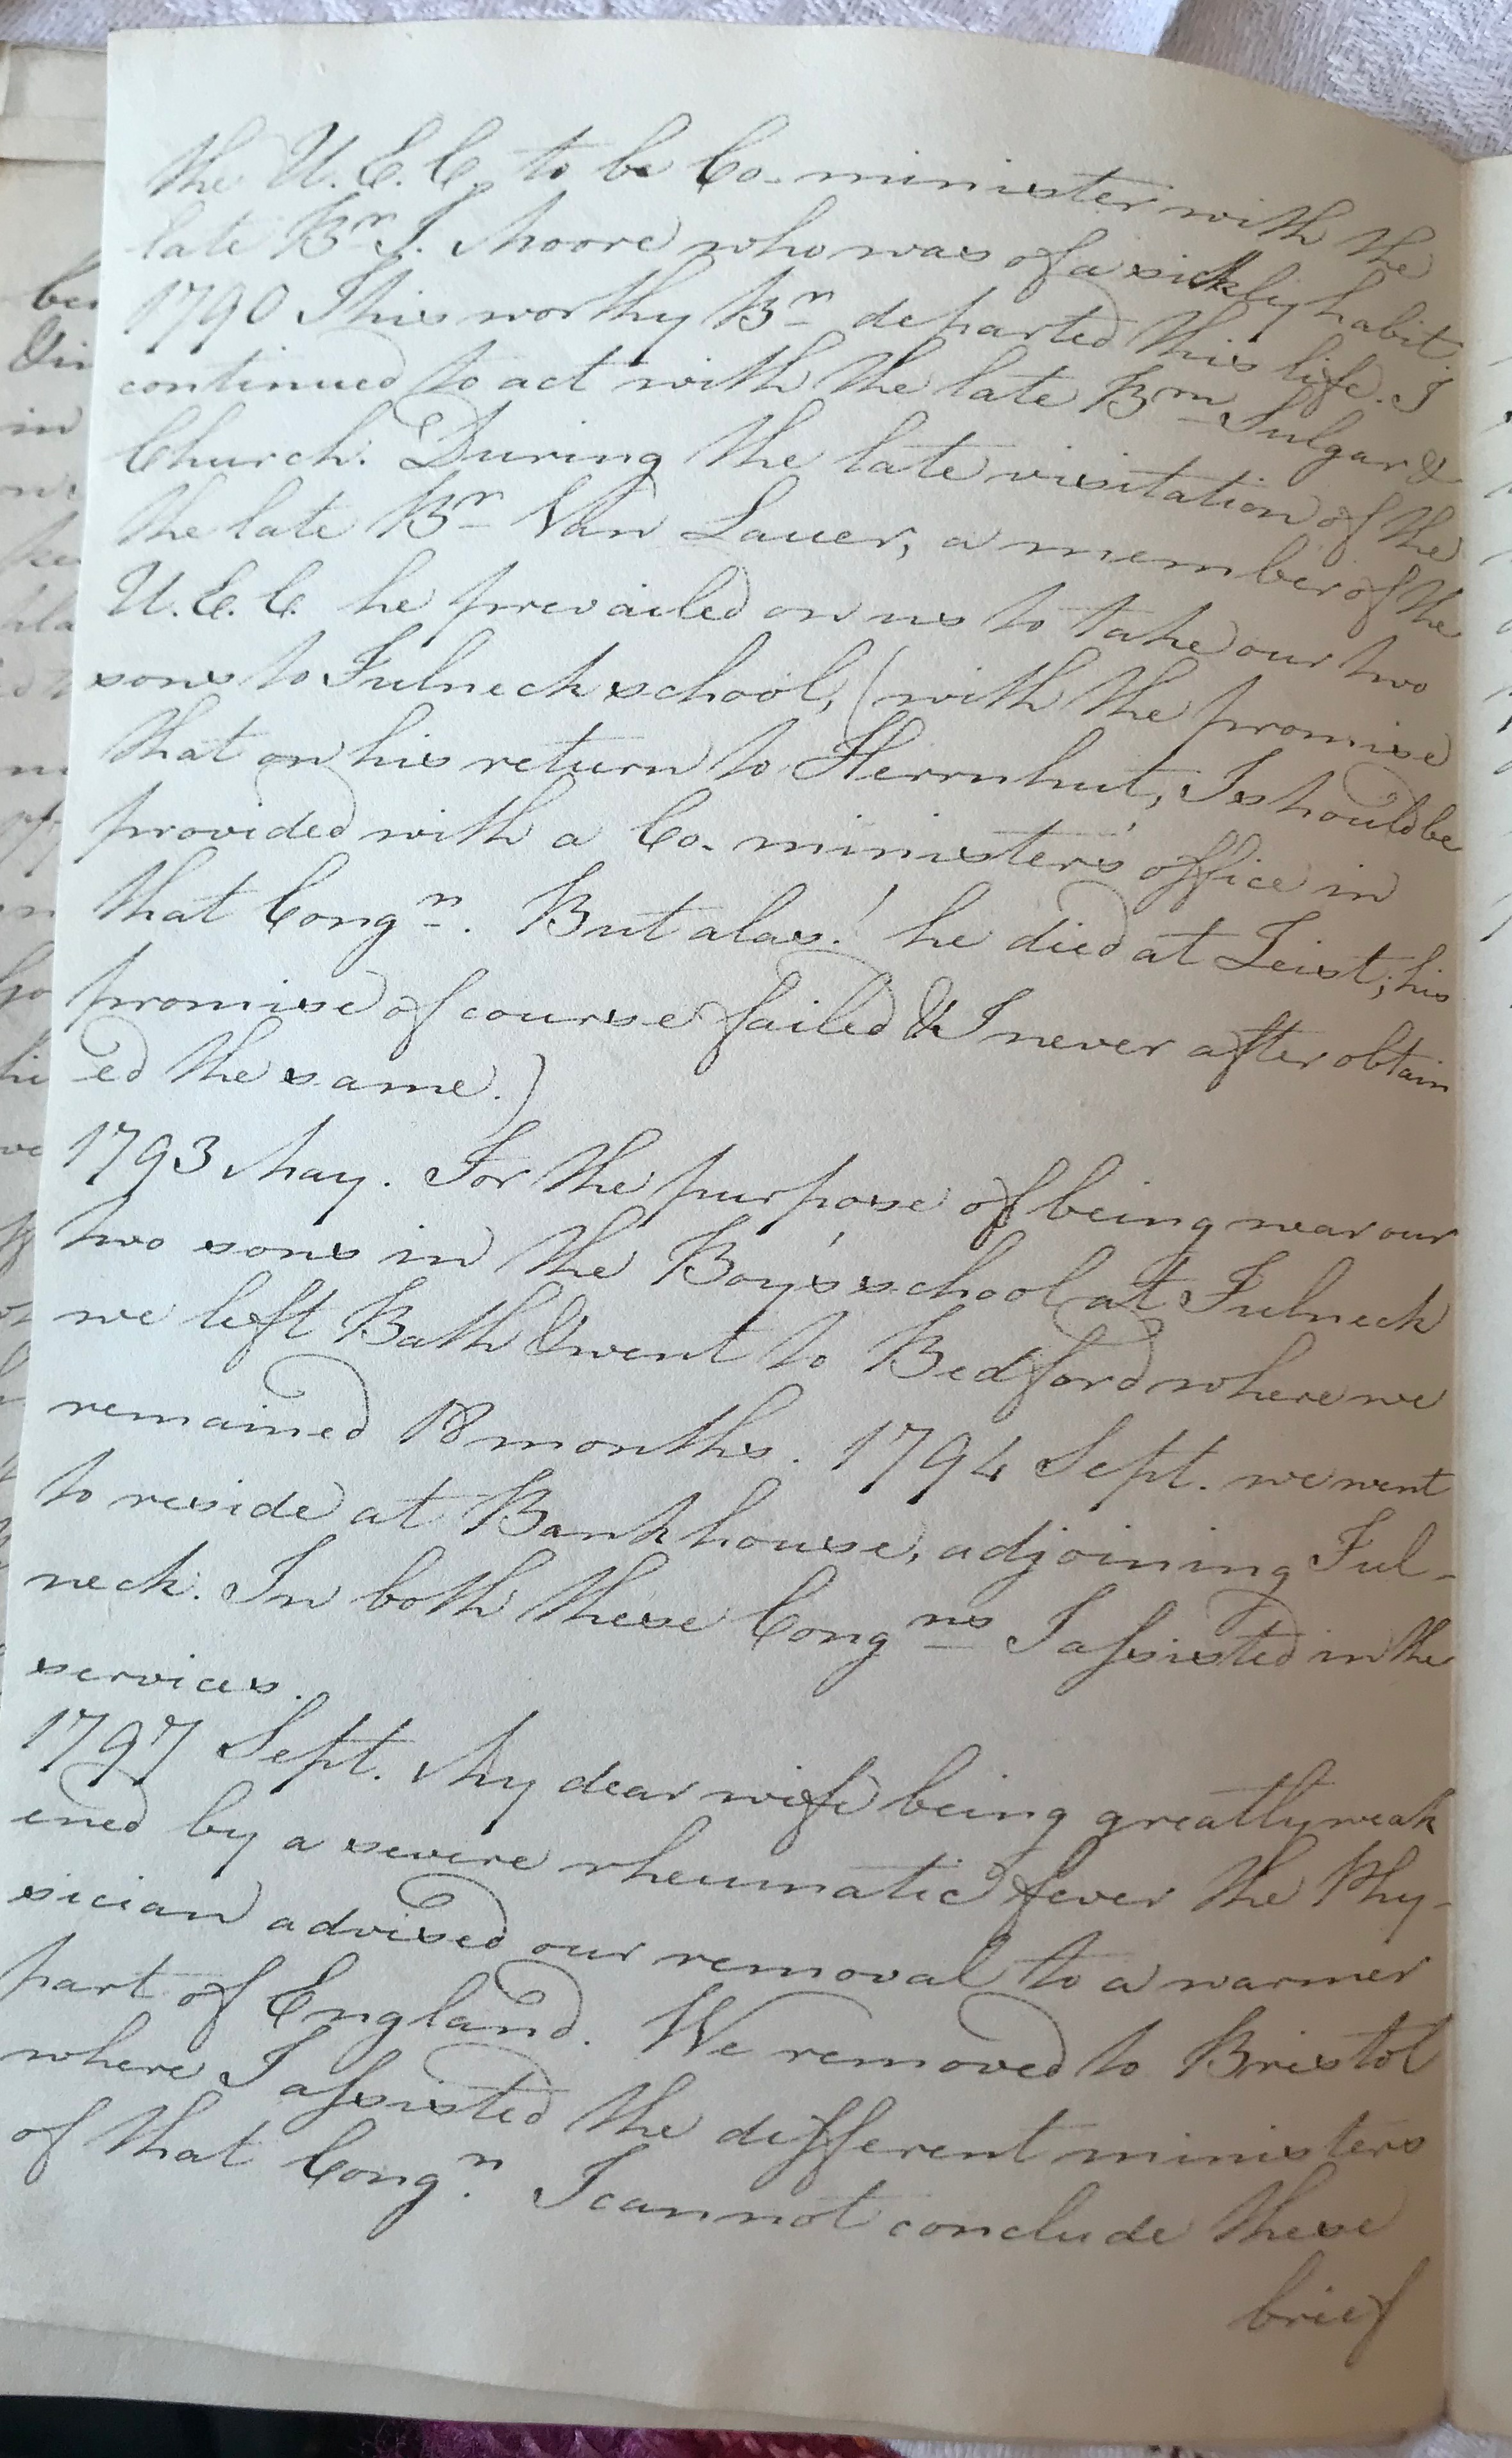 the U.E.C. to be Co-minister with the
late Br. J. Moore who was of a sickly habit
1790 This worthy Br. departed this life. I
continued to act with the late Brn. Sulgar &
Church. During the late visitation of the
the late Br. Van Lauer, a member of the
U.E.C. he prevailed on us to take our two
sons to Fulneck school, (with the promise
that on his return to Herrnhut, I should be
provided with a Co-minister's office in
that Congn. But alas! he died at Zeist; his
promise of course failed & I never after obtain
ed the same.)
1793 May. For the purpose of being near our
two sons in the Boy's school at Fulneck
we left Bath & went to Bedford where we
remained 18 months. 1794 Sept. we went
to reside at Bankhouse, adjoining Ful-
neck. In both these Congns I assisted in the
services.
1797 Sept. My dear wife being greatly weak
ened by a severe rheumatic fever the Phy-
sician advised our removal to a warmer
part of England. We removed to Bristol
where I assisted the different ministers
of that Congn. I cannot conclude these
brief